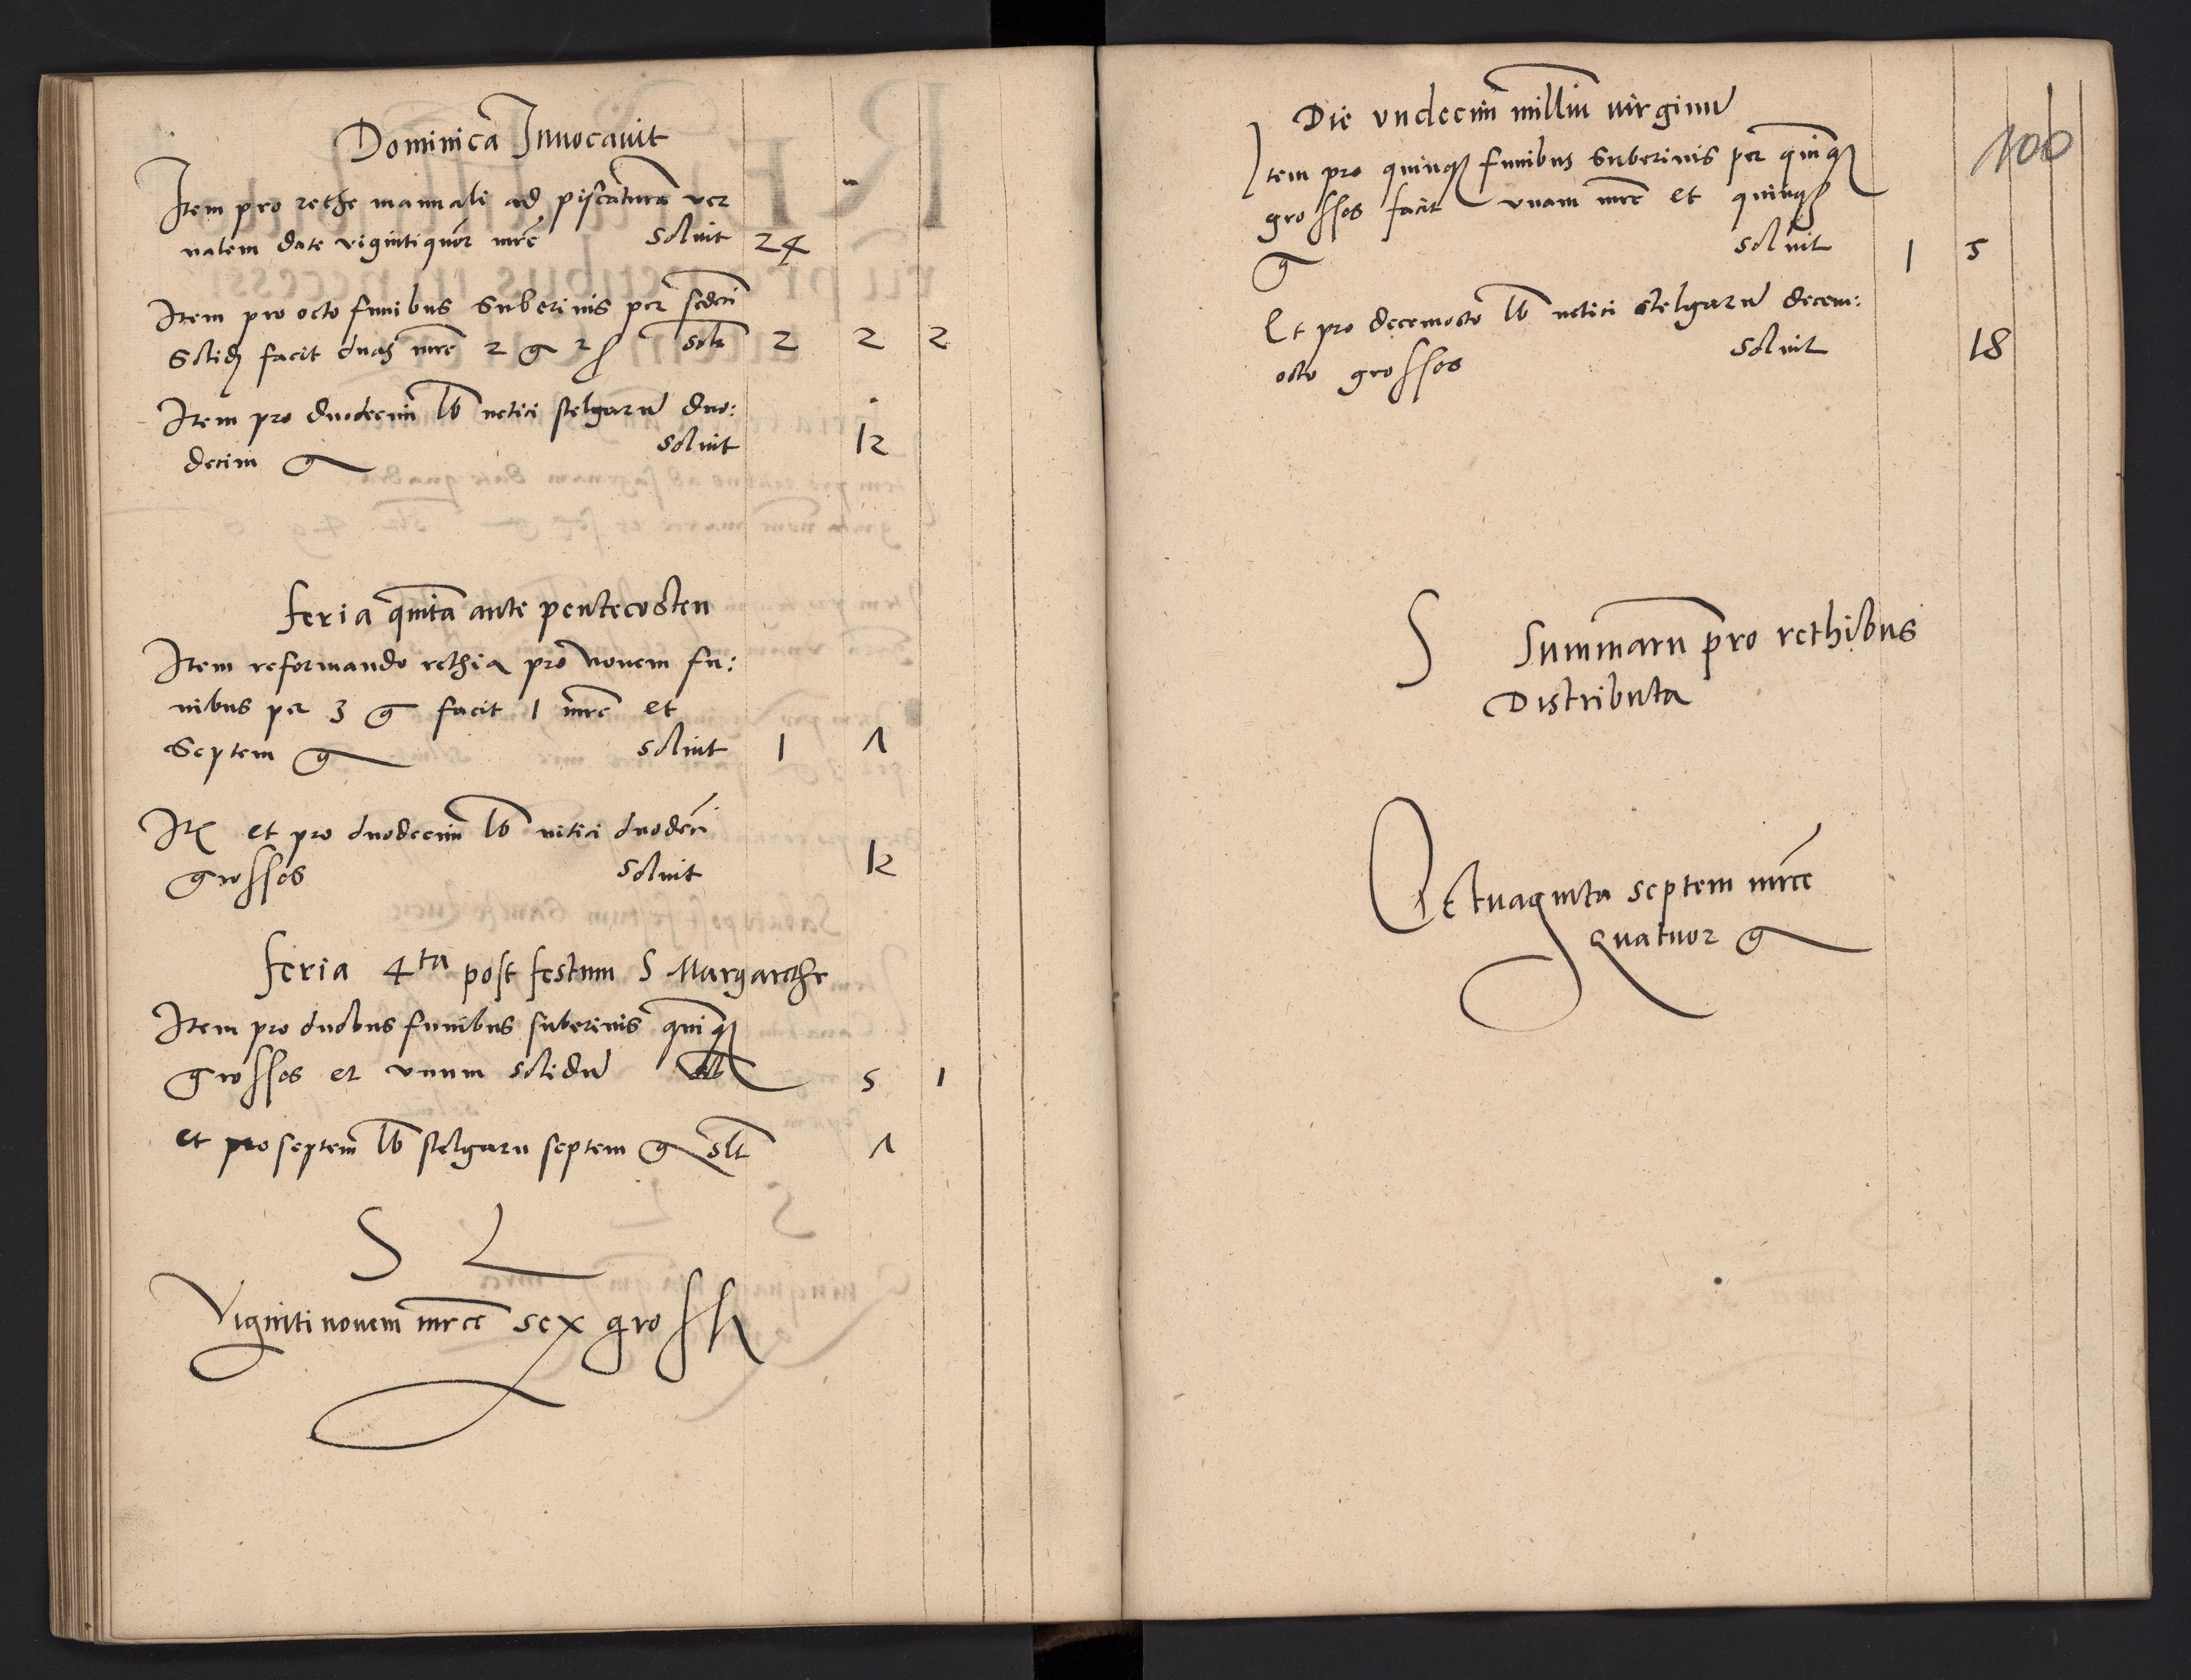 Dominica Innocauit
Item pro rethe manuali ad piscatura ver
nalem date vigintiquor mrc soluit 24
Item pro octo funibus Suberinis per sedeci
Solid facit duas mrc 2 g 2 s solt 2 2 2
Item pro duodecim lb netici stelgaru duo:
decim g soluit 12
feria quinta ante pentecosten
Item reformando rethia pro novem fu:
nibus per 3 g facit 1 mrc et
Septem g soluit 1 7
Ite et pro duodecim lb netici duodeci
grosses soluit 12
feria 4ta post festum S Margarethe
Item pro duobus funibus suberinis quinq
grosses et vnum solidu slt 5 1
et pro septem lb stelgaru septem g slt 7
S L
Viginti novem mrce sex gross
106
Die vndecim milliu virginu
Item pro quinq funibus Suberinis per quinq
grosses facit vnam mrc et quinq
g soluit 1 5
Et pro decemocto lb netici stelgaru decem:
octo grosses soluit 18
S Summaru pro rethibus
Distributa
Octuaginta septem mrce
quatuor g